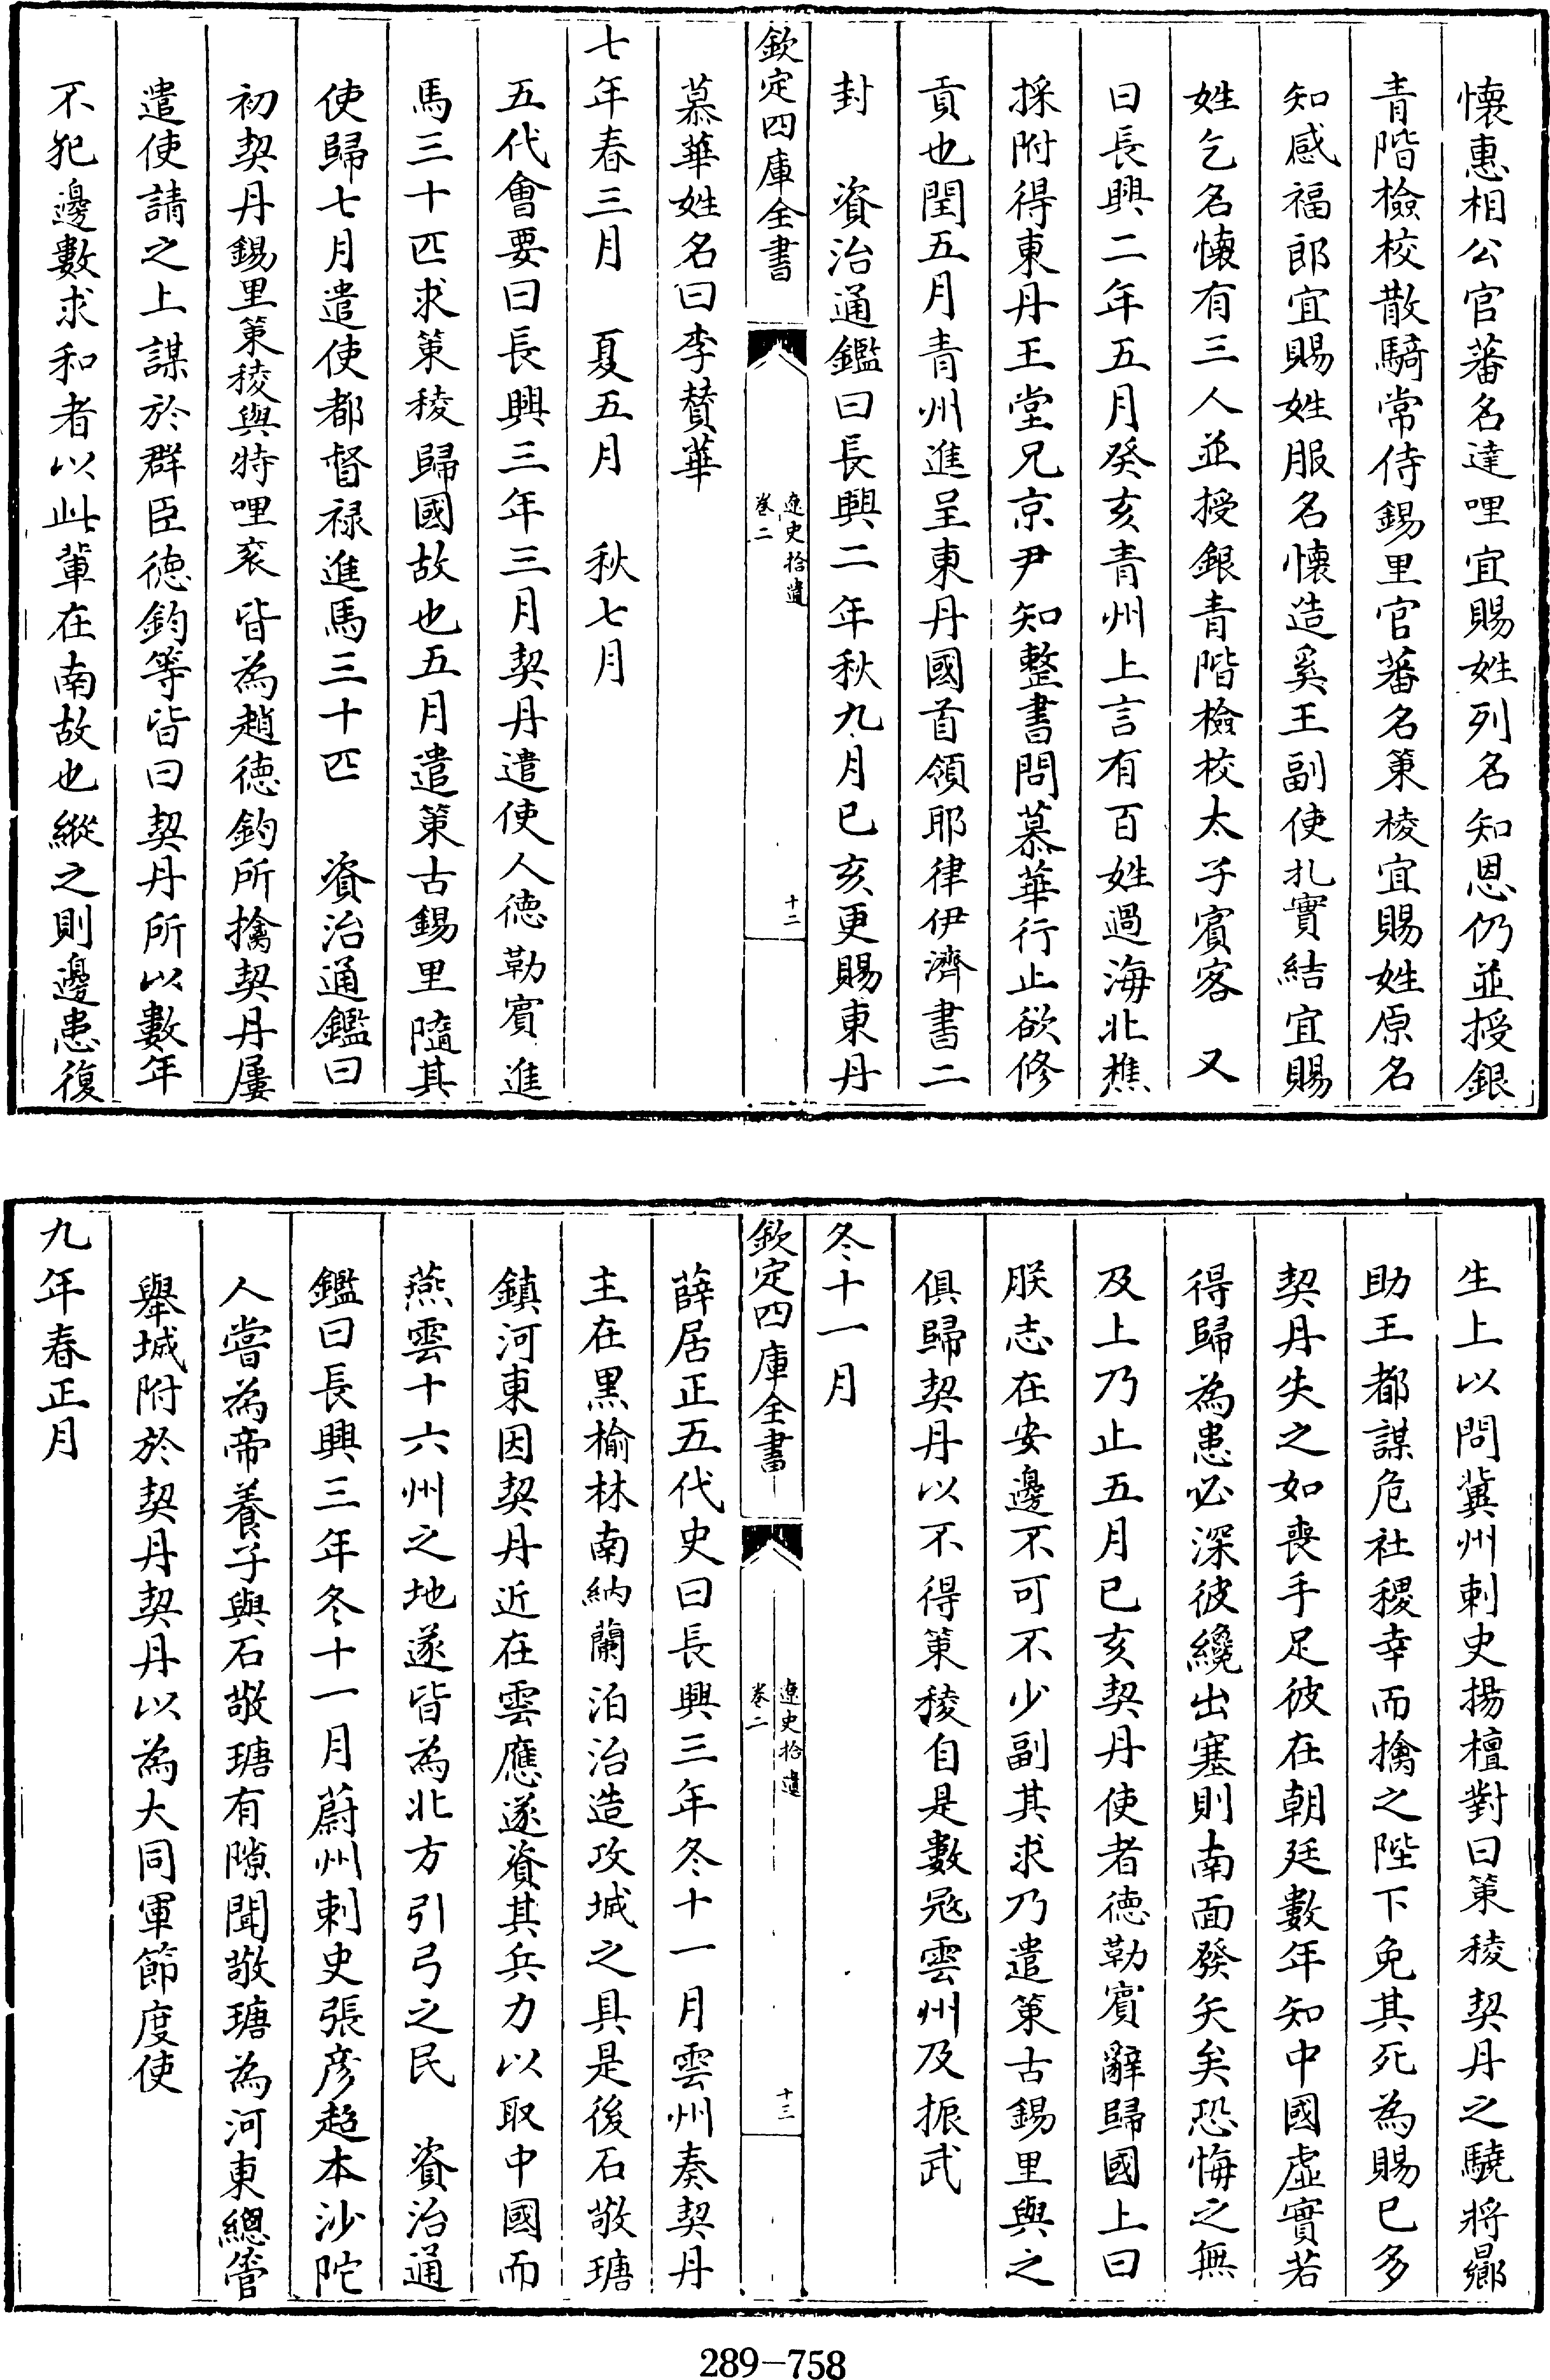 懷惠相公官蕃名達哩宜賜姓列名知恩仍並授銀
青階檢校散騎常侍錫里官蕃名策稜宜賜姓原名
知感福郎宜賜姓服名懷造奚王副使扎實結宜賜
姓乞名懷有三人並授銀青階檢校太子賓客　又
曰長興二年五月癸亥青州上言有百姓過海北樵
採附得東丹王堂兄京尹知整書問慕華行止欲修
貢也閏五月青州進呈東丹國首領耶律伊濟書二
封　資治通鑑曰長興二年秋九月已亥更賜東丹
欽定四庫全書
遼史拾遺
卷二
十二
慕華姓名曰李賛華
七年春三月　夏五月　秋七月
五代會要曰長興三年三月契丹遣使人德勒賓進
馬三十匹求策稜歸國故也五月遣策古錫里隨其
使歸七月遣使都督祿進馬三十匹　資治通鑑曰
初契丹錫里策稜與特哩袞皆為趙德鈞所擒契丹屢
遣使請之上謀於群臣德鈞等皆曰契丹所以數年
不犯邊數求和者以此輩在南故也縱之則邊患復
生上以問冀州刺史揚檀對曰策稜契丹之驍將鄉
助王都謀危社稷幸而擒之陛下免其死為賜已多
契丹失之如喪手足彼在朝廷數年知中國虛實若
得歸為患必深彼纔出塞則南面發矢矣恐悔之無
及上乃止五月已亥契丹使者德勒賓辭歸國上曰
朕志在安邊不可不少副其求乃遣策古錫里與之
俱歸契丹以不得策稜自是數冦雲州及振武
冬十一月
欽定四庫全書
遼史拾遺
卷二
十三
薛居正五代史曰長興三年冬十一月雲州奏契丹
主在黑榆林南納蘭泊治造攻城之具是後石敬瑭
鎮河東因契丹近在雲應遂資其兵力以取中國而
燕雲十六州之地遂皆為北方引弓之民　資治通
鑑曰長興三年冬十一月蔚州刺史張彥超本沙陀
人嘗為帝養子與石敬瑭有隙聞敬瑭為河東總管
舉城附於契丹契丹以為大同軍節度使
九年春正月
289-758